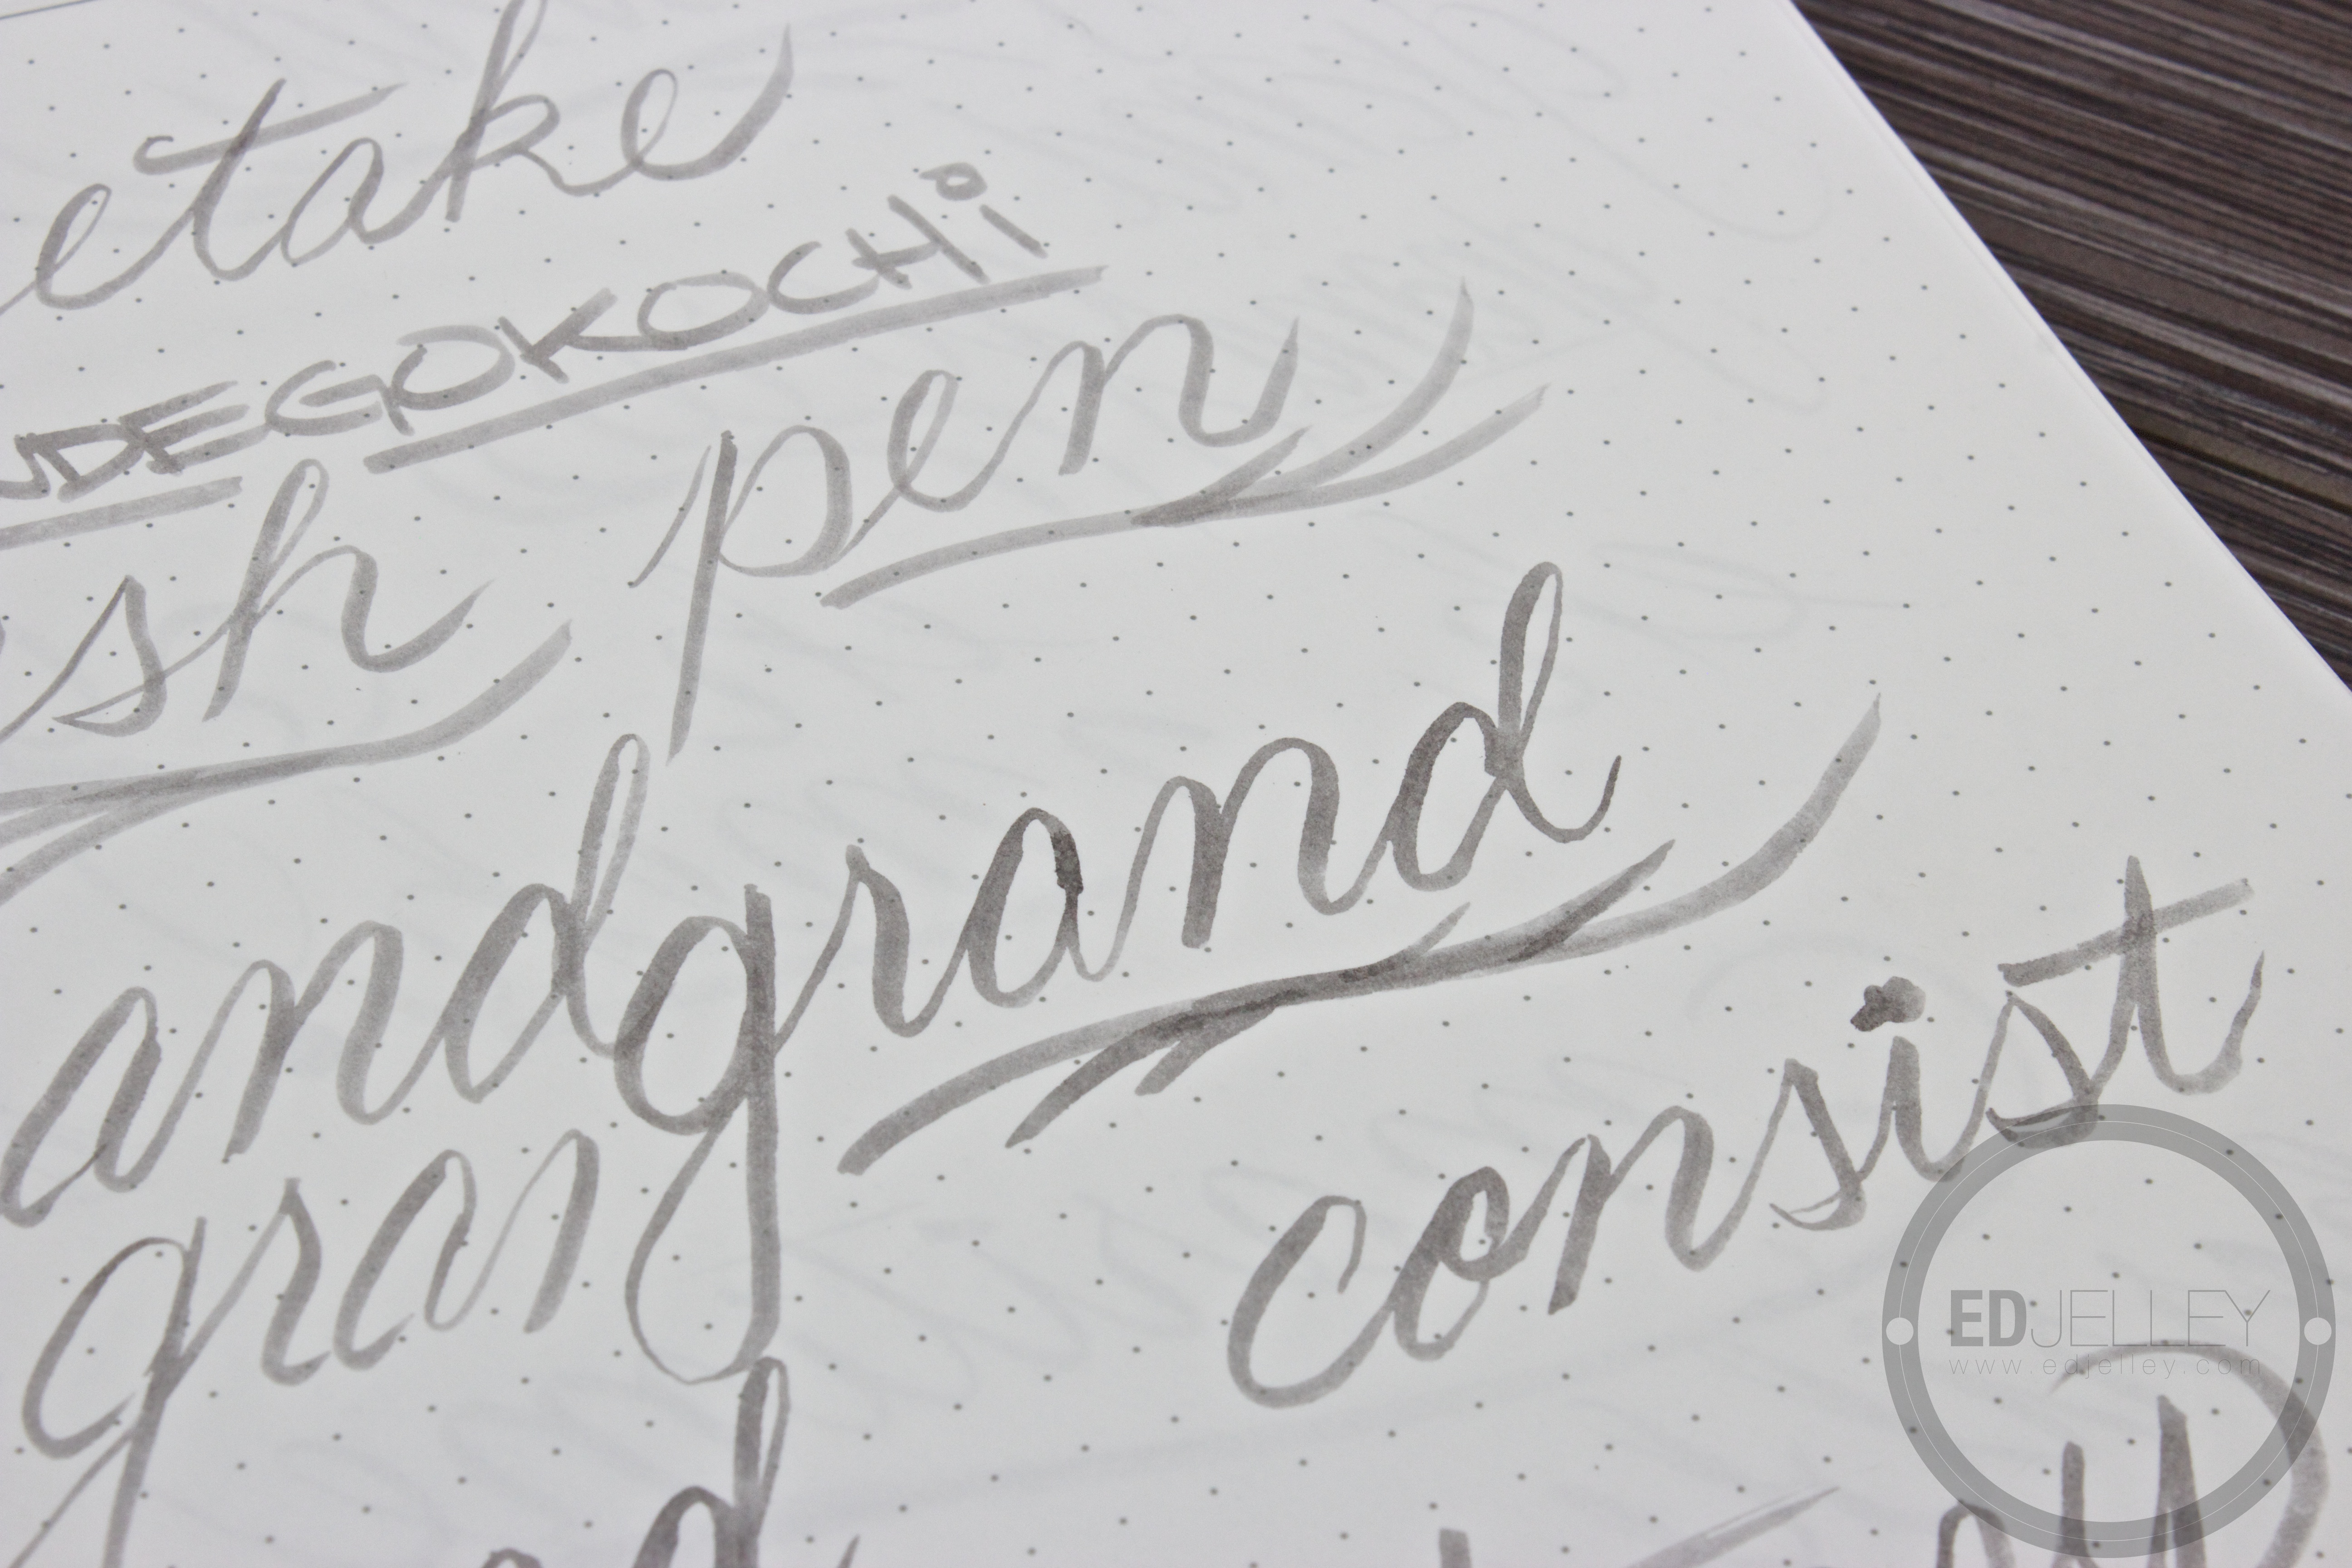 etake
FUDEGOKOCHi
sh pen
and grand
gran
consist
EDJELLEY
www.edjelley.com